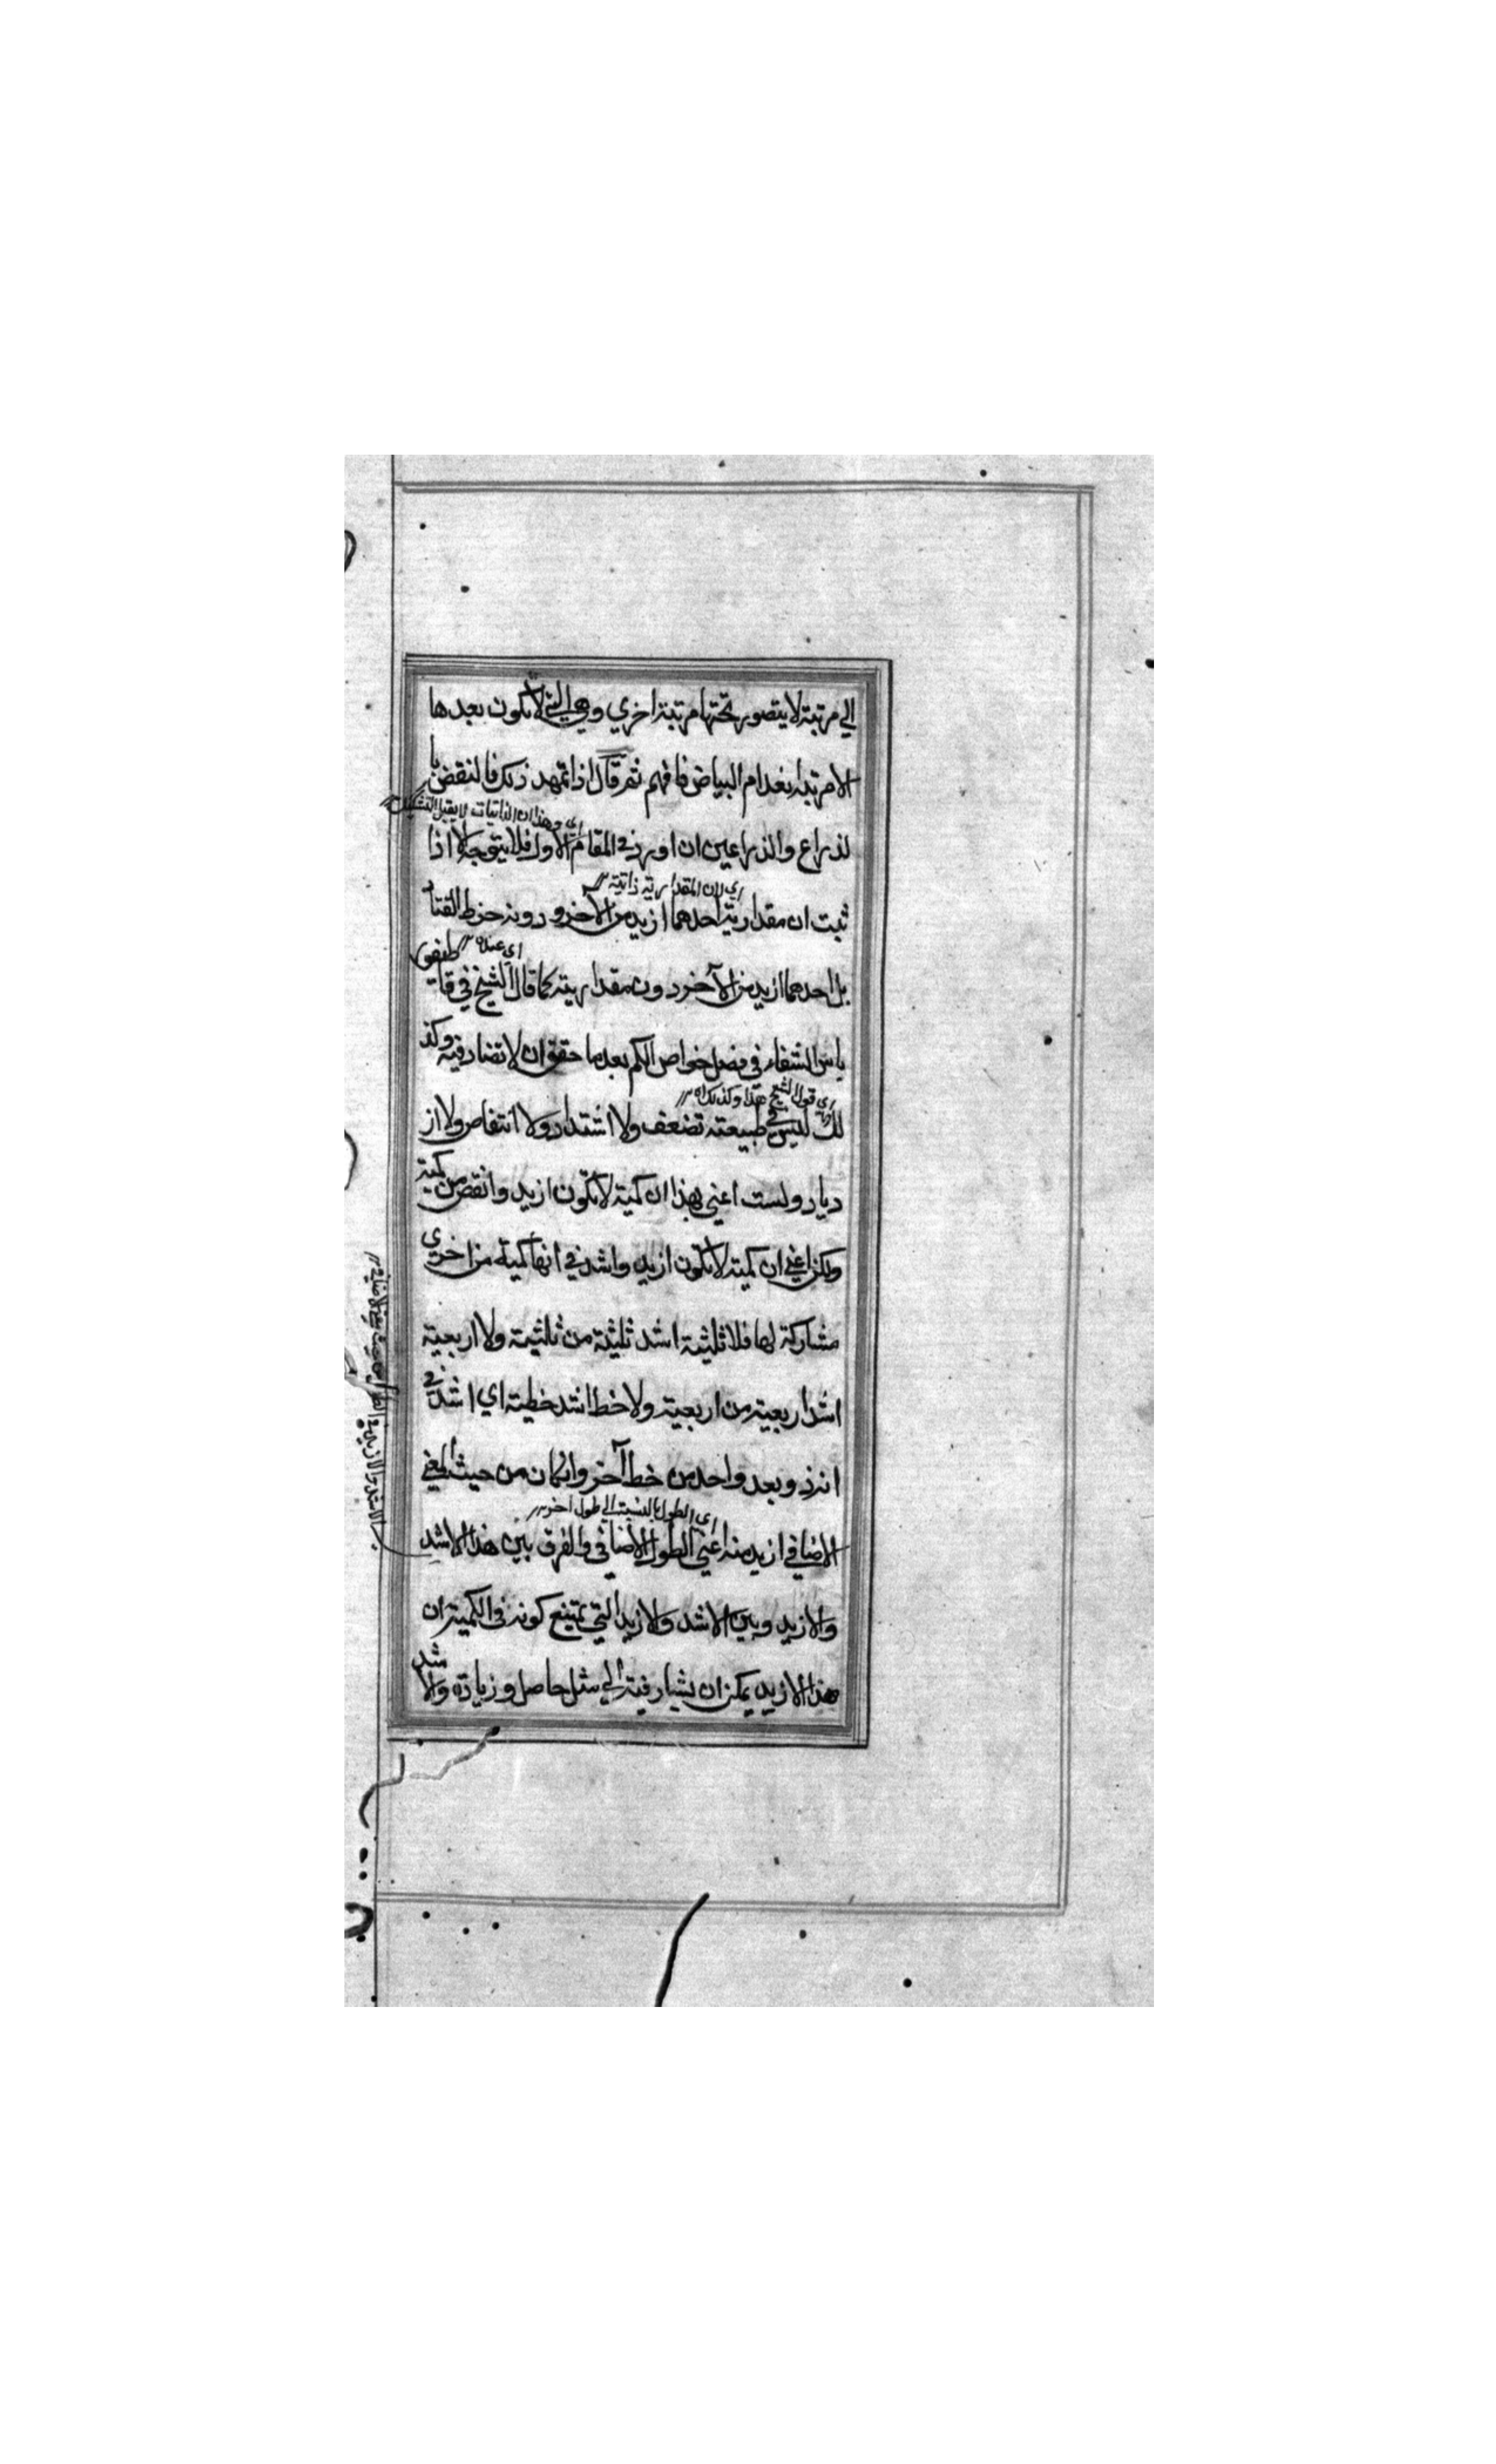 الي مرتبة لا يتصور تحتها مرتبة اخري وهي التي لا تكون بعدها
الا مرتبة انعدام البياض فافهم ثم قال اذا تمهد ذلك فالنقض با
اي وهذا ان الذاتيات لا يقبل التشكيك
لذراع والذراعين ان اورد في المقام الاول فلا يتوجه الا اذا
اي لان المقدارية ذاتية
ثبت ان مقدارية احدهما ازيد من الآخر ودونه خرط القتاد
اي عنده
بل احدهما ازيد من الآخر دون مقداريته كما قال الشيخ في قاطيغو
رياس الشفاء في فصل خواص الكم بعد ما حقق ان لا تضاد فيه وكذ
اي قول الشيخ هذا وكذلك اه
لك ليس في طبيعته تضعف ولا اشتداد ولا انتقاص ولا از
دياد ولست اعني بهذا ان كمية لا تكون ازيد وانقص من كمية
ولكن اعني ان كمية لا تكون ازيد واشد في انها كمية من اخري
مشاركة لها فلا ثلثية اشد ثلثية من ثلثية ولا اربعية
اشد اربعية من اربعية ولا خط اشد خطية اي اشد في
انه ذو بعد واحد من خط آخر وان كان من حيث المعني
اي الطول بالنسبة الي طول آخر
الاضافي ازيد منه اعني الطول الاضافي والفرق بين هذا الاشد
والازيد وبين الاشد والازيد التي يمتنع كونه في الكمية ان
هذا الازيد يمكن ان يشار فيه الي مثل حاصل وزيادة والاشد